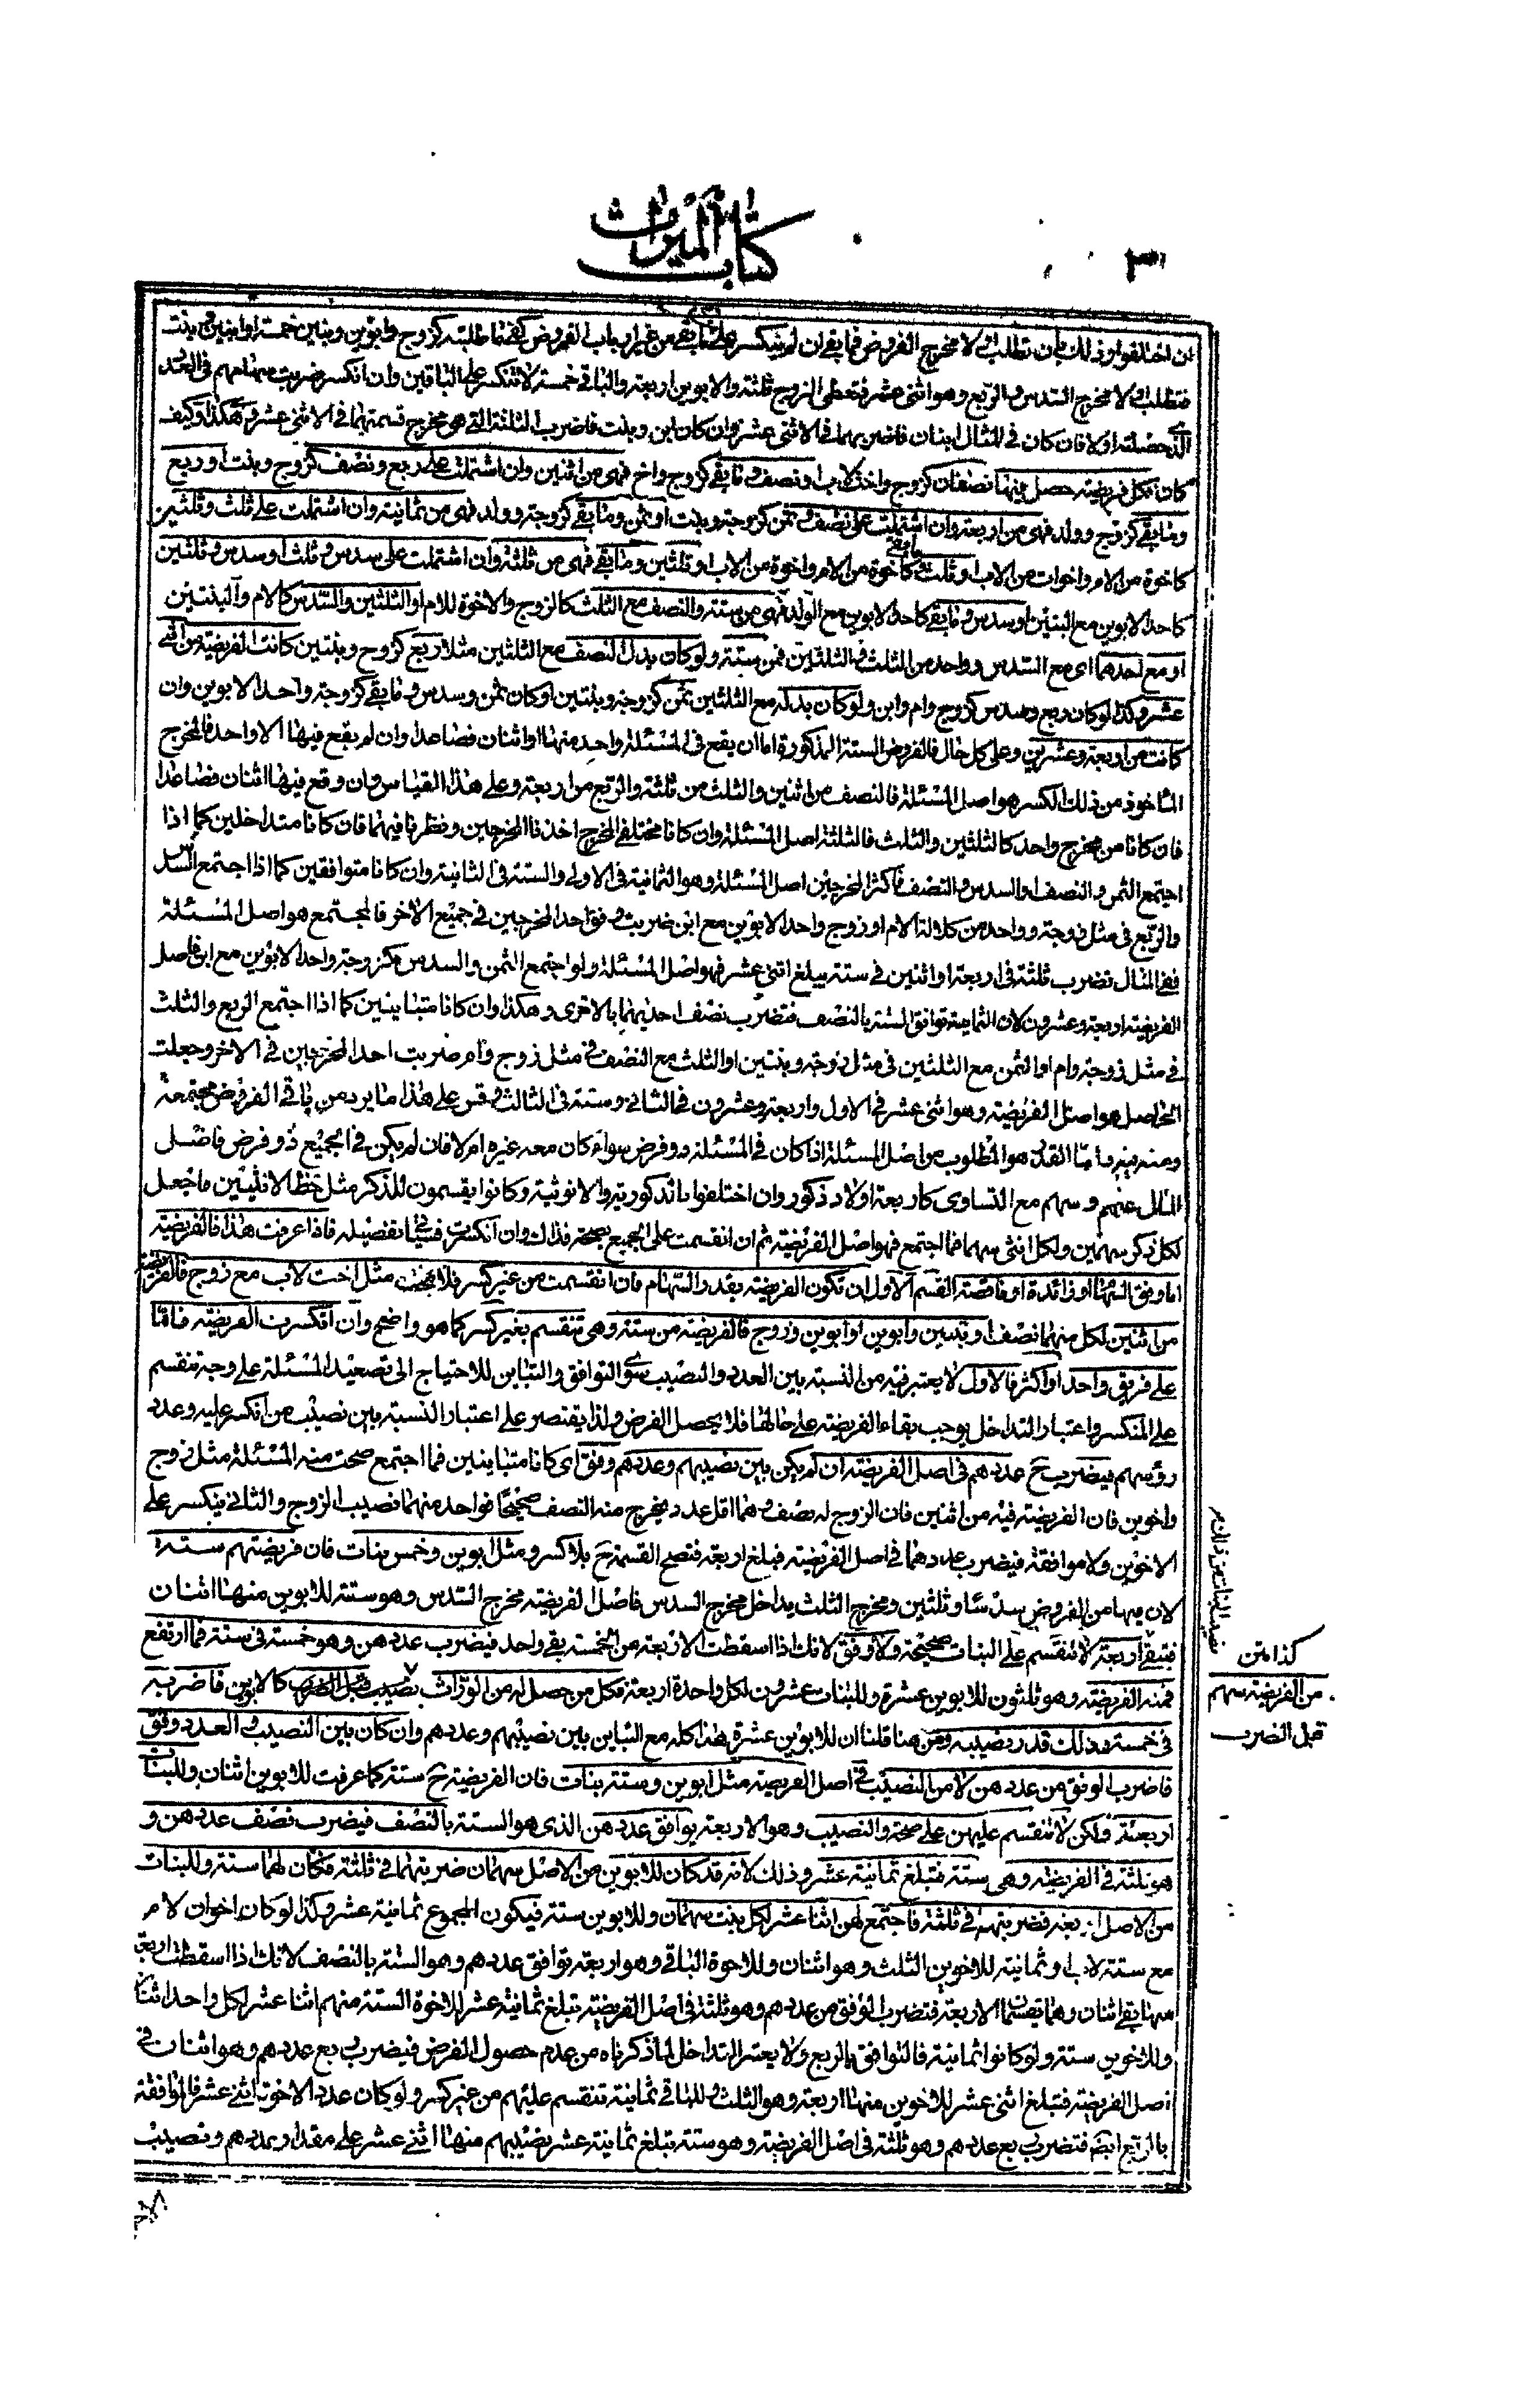 كتاب الميراث
ان اختلفوا وذلك بان تطلب اولا مخرج الفروض فما بقي ان لم ينكسر على من بقي من غير ارباب الفروض كفتنا طلبته كزوج وابوين وبنين خمسة او ابنين وبنت
فتطلب اولا مخرج السدس والربع وهو اثنى عشر فتعطى الزوج ثلثة والابوين اربعة والباقي خمسة لا تنكسر على الباقين وان انكسر ضربت سهامهم في العدد
الذي حصلته اولا فان كان في المثال ابنان فاضربهما في الاثنى عشر وان كان ابن وبنت فاضرب الثلثة التي هي مخرج قسمتهما في الاثنى عشر وهكذا وكيف
كان فكل فريضة حصل فيها نصفان كزوج واخت لاب او نصف وما بقي كزوج واخ فهى من اثنين وان اشتملت على ربع ونصف كزوج وبنت او ربع
وما بقي كزوج وولد فهى من اربعة وان اشتملت على نصف وثمن كزوجة وبنت او ثمن وما بقي كزوجة وولد فهى من ثمانية وان اشتملت على ثلث وثلثين
كاخوة من الام واخوات من الاب او ثلث وما بقى كاخوة من الام واخوة من الاب او ثلثين وما بقي فهى من ثلثة وان اشتملت على سدس وثلث او سدس وثلثين
كاحد الابوين مع البنتين او سدس وما بقي كاحد الابوين مع الولد فهى من ستة والنصف مع الثلث كالزوج والاخوة للام او الثلثين والسدس كالام والبنتين
او مع احدهما اى مع السدس وواحد من الثلث والثلثين فمن ستة ولو كان بدل النصف مع الثلثين مثلا ربع كزوج وبنتين كانت الفريضة من اثنى
عشر وكذا لو كان ربع وسدس كزوج وام وابن ولو كان بدله مع الثلثين ثمن كزوجة وبنتين او كان ثمن وسدس وما بقي كزوجة واحد الابوين وابن
كانت من اربعة وعشرين وعلى كل حال فالفروض الستة المذكورة اما ان يقع في المسئلة واحد منها او اثنان فصاعدا وان لم يقع فيها الا واحد فالمخرج
الماخوذ من ذلك الكسر هو اصل المسئلة فالنصف من اثنين والثلث من ثلثة والربع من اربعة وعلى هذا القياس وان وقع فيها اثنان فصاعدا
فان كانا من مخرج واحد كالثلثين والثلث فالثلثة اصل المسئلة وان كانا مختلفي المخرج اخذنا المخرجين ونظرنا فيهما فان كانا متداخلين كما اذا
اجتمع الثمن والنصف او السدس والنصف فاكثر المخرجين اصل المسئلة وهو الثمانية في الاولى والستة في الثانية وان كانا متوافقين كما اذا اجتمع السدس
والربع في مثل زوجة وواحد من كلالة الام او زوج واحد الابوين مع ابن ضربت وفق احد المخرجين في جميع الاخر فالمجتمع هو اصل المسئلة
ففي المثال تضرب ثلثة في اربعة او اثنين في ستة يبلغ اثنى عشر فهو اصل المسئلة ولو اجتمع الثمن والسدس كزوجة واحد الابوين مع ابن فاصل
الفريضة اربعة وعشرون لان الثمانية توافق الستة بالنصف فتضرب نصف احديهما بالاخرى وهكذا وان كانا متباينين كما اذا اجتمع الربع والثلث
في مثل زوجة وام او الثمن مع الثلثين في مثل زوجة وبنتين او الثلث مع النصف في مثل زوج وام ضربت احد المخرجين في الاخر وجعلت
الحاصل هو اصل الفريضة وهو اثنى عشر في الاول واربعة وعشرون في الثاني وستة في الثالث وقس على هذا ما يرد من باقي الفروض مجتمعة
ومنفردة واما القدر هو المطلوب من اصل المسئلة اذا كان في المسئلة ذو فرض سواء كان معه غيره ام لا فان لم يكن في الجميع ذو فرض فاصل
المال عددهم وسهم مع التساوى كاربعة اولاد ذكور وان اختلفوا بالذكورية والانوثية وكانوا يقسمون للذكر مثل حظ الانثيين فاجعل
لكل ذكر سهمين ولكل انثى سهما فما اجتمع فهو اصل الفريضة ثم ان انقسمت على الجميع بصحة فذاك وان انكسرت فسياتى تفصيله فاذا عرفت هذا فالفريضة
اما وفق السهام او زائدة او ناقصة القسم الاول ان تكون الفريضة بقدر السهام فان انقسمت من غير كسر فلا بحث مثل اخت لاب مع زوج فالفريضة
من اثنين لكل منهما نصف او بنتين وابوين او ابوين وزوج فالفريضة من ستة وهى تنقسم بغير كسر كما هو واضح وان انكسرت الفريضة فاما
على فريق واحد او اكثر فالاول لا يعتبر فيه من النسبة بين العدد والنصيب سوى التوافق والتباين للاحتياج الى تصعيد المسئلة على وجه تنقسم
على المنكسر واعتبار التداخل يوجب بقاء الفريضة على حالها فلا يحصل الفرض ولذا يقتصر على اعتبار النسبة بين نصيب من انكسر عليه وعدد
رؤسهم فيضرب ح عددهم في اصل الفريضة ان لم يكن بين نصيبهم وعددهم وفق اى كانا متباينين فما اجتمع صحت منه المسئلة مثل زوج
واخوين فان الفريضة فيه من اثنين فان الزوج له نصف وهما اقل عدد يخرج منه النصف صحيحا فواحد منهما نصيب الزوج والثاني ينكسر على
الاخوين ولا موافقة فيضرب عددهما في اصل الفريضة فيبلغ اربعة فتصح القسمة ح بلا كسر ومثل ابوين وخمس بنات فان فريضتهم ستة
لان فيها من الفروض سدسا وثلثين ومخرج الثلث يداخل مخرج السدس فاصل الفريضة مخرج السدس وهو ستة للابوين منها اثنان
فتبقى اربعة لا تنقسم على البنات صحيحة ولا وفق لانك اذا اسقطت الاربعة من الخمسة بقي واحد فيضرب عددهن وهو خمسة في ستة فما ارتفع
فمنه الفريضة وهو ثلثون للابوين عشرة وللبنات عشرون لكل واحدة اربعة فكل من حصل له من الوراث نصيب قبل الضرب كالابوين فاضربه
في خمسة فذلك قدر نصيبه ومن هنا قلنا ان للابوين عشرة هذا كله مع التباين بين نصيبهم وعددهم وان كان بين النصيب والعدد وفق
فاضرب الوفق من عددهن لا من النصيب في اصل الفريضة مثل ابوين وستة بنات فان الفريضة ح ستة كما عرفت للابوين اثنان وللبنات
اربعة ولكن لا تنقسم عليهن على صحة والنصيب وهو الاربعة يوافق عددهن الذى هو الستة بالنصف فيضرب نصف عددهن و
هو ثلثة في الفريضة وهى ستة فتبلغ ثمانية عشر وذلك لانه قد كان للابوين من الاصل سهمان ضربتهما في ثلثة فكان لهما ستة وللبنات
من الاصل اربعة فضربتها في ثلثة فاجتمع لهن اثنا عشر لكل بنت سهمان وللابوين ستة فيكون المجموع ثمانية عشر وكذا لو كان اخوان لام
مع ستة لاب او ثمانية للاخوين الثلث وهو اثنان وللاخوة الباقي وهو اربعة توافق عددهم وهو الستة بالنصف لانك اذا اسقطت اربعة
منها بقي اثنان وهما نصف الاربعة فتضرب الوفق من عددهم وهو ثلثة في اصل الفريضة تبلغ ثمانية عشر للاخوة الستة منهم اثنا عشر لكل واحد اثنان
وللاخوين ستة ولو كانوا ثمانية فالتوافق بالربع ولا يعتبر التداخل لما ذكرناه من عدم حصول الفرض فيضرب ربع عددهم وهو اثنان في
اصل الفريضة فتبلغ اثنى عشر للاخوين منها اربعة وهو الثلث وللباقي ثمانية تنقسم عليهم من غير كسر ولو كان عدد الاخوة اثنى عشر فالموافقة
بالربع ايضا فتضرب ربع عددهم وهو ثلثة في اصل الفريضة وهو ستة تبلغ ثمانية عشر نصيبهم منها اثنى عشر على مقدار عددهم ونصيب
كذا متن
من الفريضة سهم
قبل الضرب